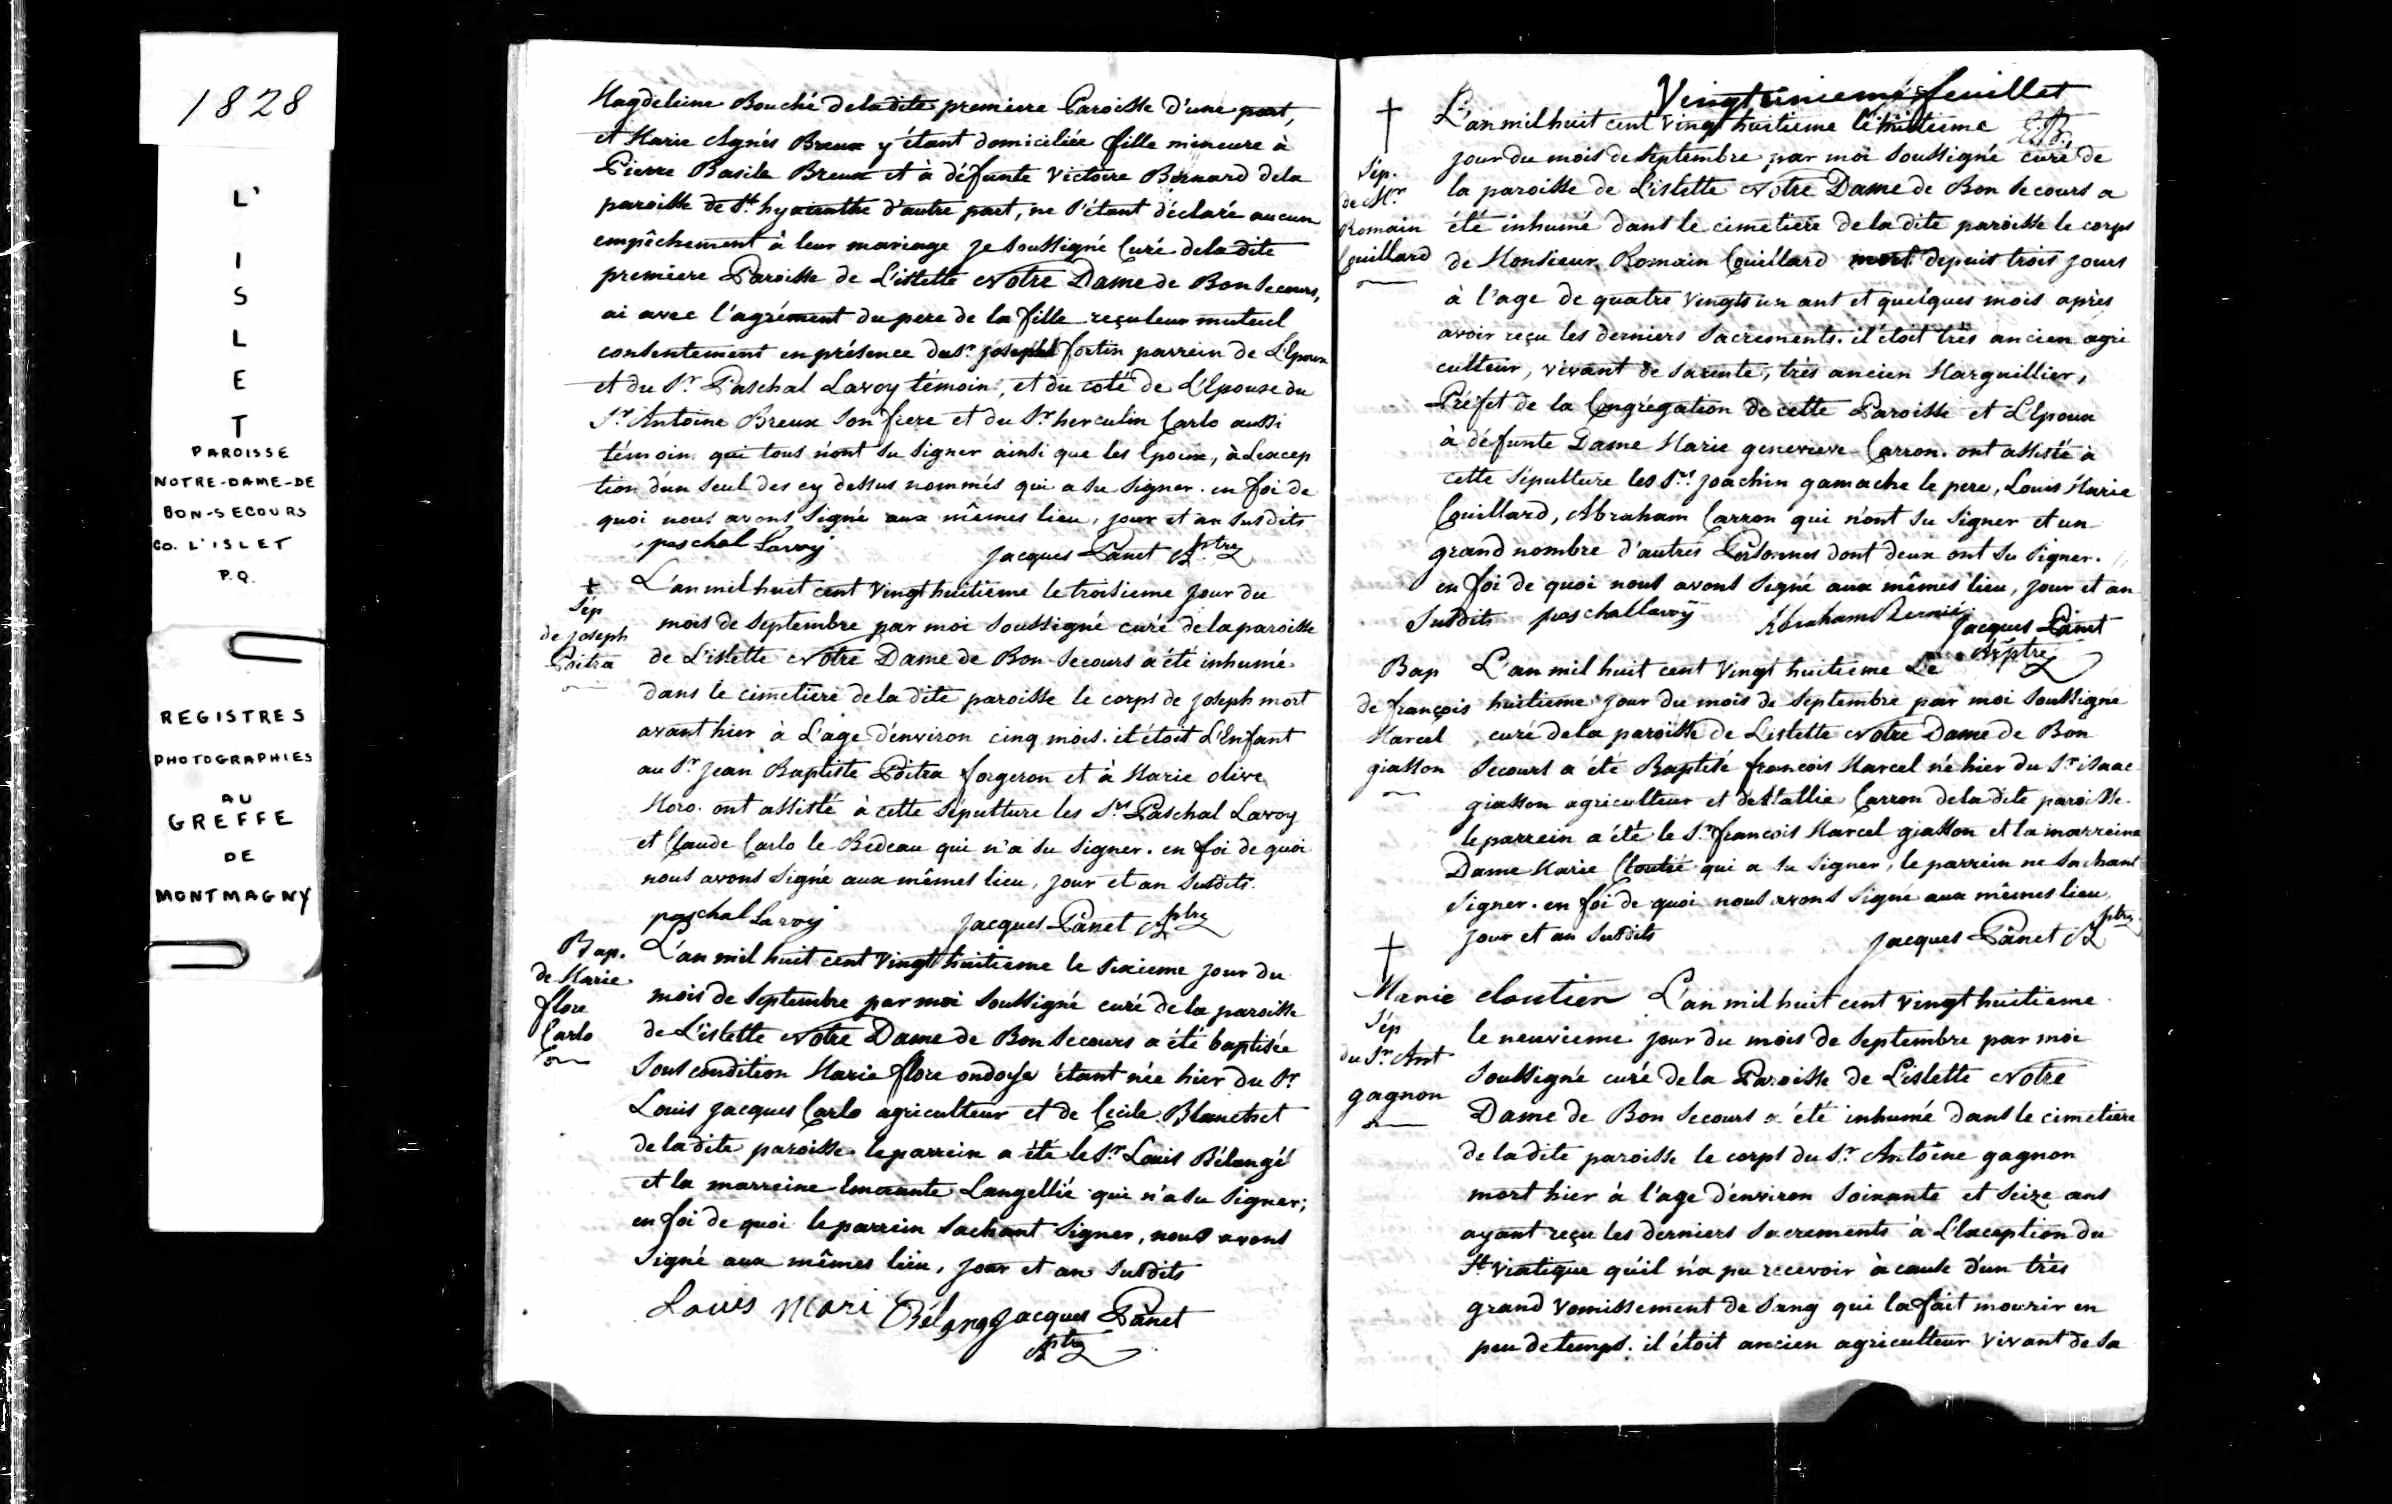 1828
L'
I
S
L
E
T
PAROISSE
NOTRE-DAME-DE
BON-SECOURS
CO. L'ISLET
P.Q.
REGISTRES
PHOTOGRAPHIES
AU
GREFFE
DE
MONTMAGNY
Magdeleine Bouché dela dite premiere Paroisse d'une part,
et Marie Agnés Breux y étant domiciliée fille mineure à
Pierre Basile Breux et à défunte Victoire Bernard dela
paroisse de St. hyacinthe d'autre part, ne s'étant déclaré aucun
empêchement à leur mariage je soussigné Curé dela dite
premiere Paroisse de L'islette Notre Dame de Bon Secours,
ai avec l'agrément du pere de la fille reçu leur mutuel
consentement en présence du Sr. joseph fortin parrein de L'Epoux
et du Sr. Paschal Lavoy témoin, et du coté de L'Epouse du
Sr. Antoine Breux son frere et du Sr. herculin Carlo aussi
témoin qui tous n'ont su signer ainsi que les Epoux, à Lexcep
tion d'un seul des cy dessus nommés qui a su signer. en foi de
quoi nous avons signé aux mêmes lieu, jour et an susdits
paschal Lavoy jacques Panet Ar. ptre
+
Sép
de joseph
Poitra
L'an mil huit cent vingt huitieme le troisieme jour du
mois de Septembre par moi soussigné curé de la paroisse
de L'islette Notre Dame de Bon Secours a été inhumé
dans le cimetiere dela dite paroisse le corps de joseph mort
avant hier à L'age d'environ cinq mois. il étoit L'Enfant
au Sr. jean Baptiste Poitra forgeron et à Marie olive
Moro. ont assisté à cette Sépulture les Srs. Paschal Lavoy
et Claude Carlo le Bedeau qui n'a su signer. en foi de quoi
nous avons signé aux mêmes lieu, jour et an susdits.
paschal Lavoy jacques Panet Ar. ptre
Bap.
de Marie
flore
Carlo
L'an mil huit cent vingt huitieme le sixieme jour du
mois de Septembre par moi soussigné curé de la paroisse
de L'islette Notre Dame de Bon Secours a été baptisée
sous condition Marie flore ondoyée étant née hier du Sr.
Louis jacques Carlo agriculteur et de Cecile Blanchet
de la dite paroisse. le parrein a été le Sr. Louis Bélangé
et la marreine Emerante Langellié qui n'a su signer;
en foi de quoi le parrein sachant signer, nous avons
signé aux mêmes lieu, jour et an susdits
Louis Mari Bélang jacques Panet
Ar. ptre
Vingtunieme feuillet
+
Sép.
de Mr.
Romain
Couillard
L'an mil huit cent vingt huitieme le huitieme
jour du mois de Septembre par moi soussigné curé de
la paroisse de L'islette Notre Dame de Bon Secours a
été inhumé dans le cimetiere de la dite paroisse le corps
de Monsieur Romain Couillard mort depuis trois jours
à l'age de quatre vingts un ans et quelques mois après
avoir reçu les derniers sacrements. il étoit très ancien agri
culteur, vivant de sa rente, très ancien Marguillier,
Préfet de la Congrégation de cette Paroisse et L'Epoux
à défunte Dame Marie genevieve Carron. ont assisté à
cette sépulture les Srs. joachin gamache le pere, Louis Marie
Couillard, Abraham Carron qui n'ont su signer et un
grand nombre d'autres Personnes dont deux ont su signer.
en foi de quoi nous avons signé aux mêmes lieu, jour et an
susdits paschal lavoy Abraham jacques Panet
Ar. ptre
Bap
de françois
Marcel
giasson
L'an mil huit cent vingt huitieme Le
huitieme jour du mois de Septembre par moi soussigné
curé de la paroisse de L'islette Notre Dame de Bon
Secours a été Baptisé francois Marcel né hier du Sr. isaac
giasson agriculteur et de Stallie Carron dela dite paroisse.
le parrein a été le Sr. francois Marcel giasson et la marreine
Dame Marie Cloutié qui a su signer, le parrein ne sachant
signer. en foi de quoi nous avons signé aux mêmes lieu,
jour et an susdits jacques Panet Ar. ptre
Marie cloutier
+
Sép
du Sr. Ant
gagnon
L'an mil huit cent vingt huitieme
le neuvieme jour du mois de Septembre par moi
soussigné curé dela Paroisse de L'islette Notre
Dame de Bon Secours a été inhumé dans le cimetiere
de la dite paroisse le corps du Sr. Antoine gagnon
mort hier à l'age d'environ soixante et seize ans
ayant reçu les derniers sacrements à L'Exception du
St. viatique qu'il n'a pu recevoir à cause d'un très
grand vomissement de sang qui la fait mourir en
peu de temps. il étoit ancien agriculteur vivant de sa